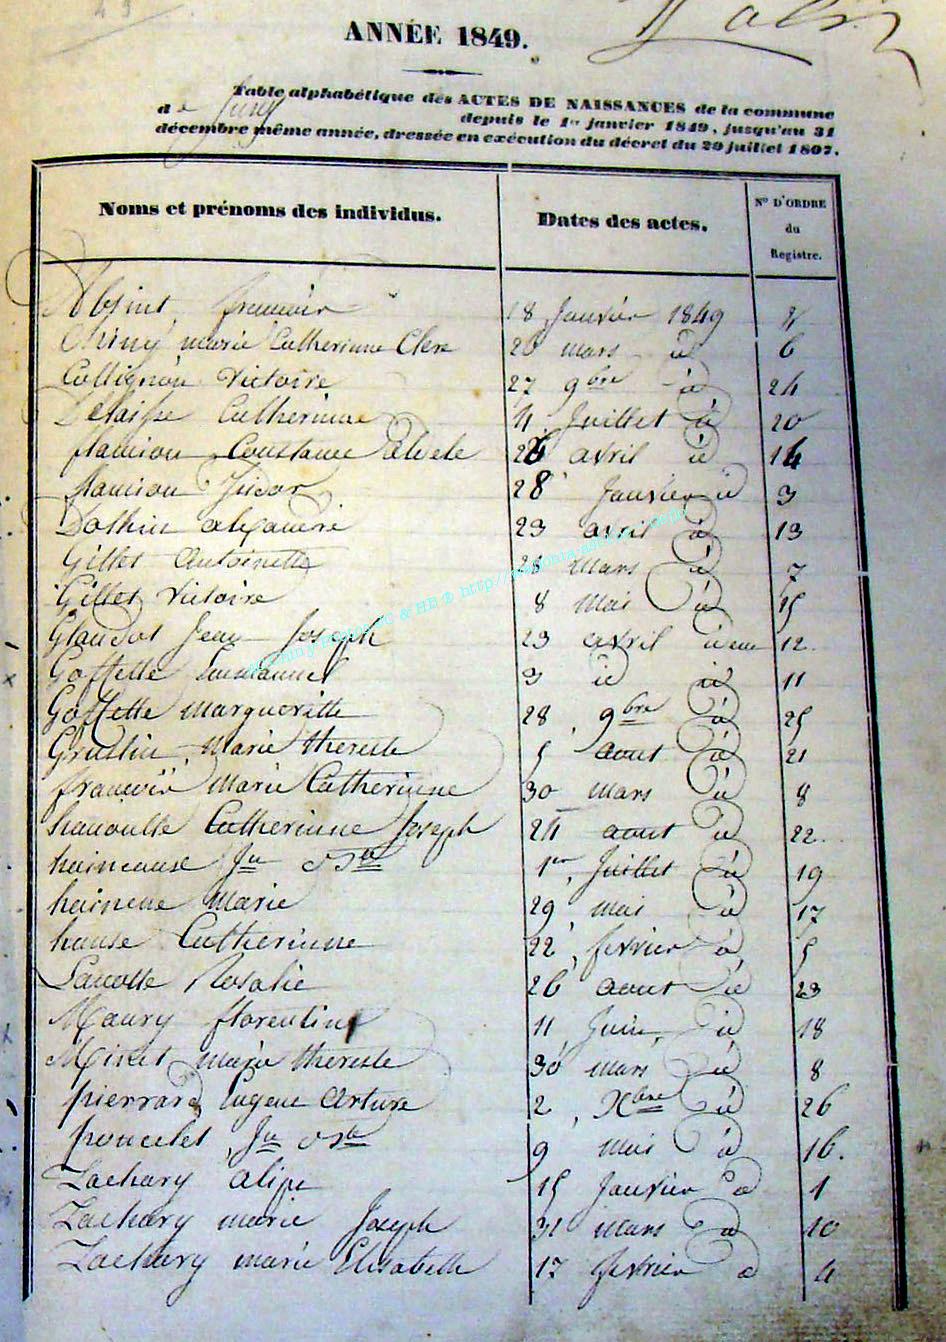 ANNÉE 1849.
Table alphabétique des ACTES DE NAISSANCES de la commune
de Juny depuis le 1er janvier 1849, jusqu'au 31
décembre même année, dressée en exécution du décret du 20 juillet 1807.
Noms et prénoms des individus. Dates des actes. N° D'ORDRE du Registre.
Absint, francoir 18 Janvier 1849 2
Chiny marie Catherinne Clere 20 mars id 6
Collignon Victoire 27 9bre id 24
Delaisse Catherinne 11 Juillet id 20
flamion Constance Adele 26 avril id 14
flamion Isidor 28 Janvier id 3
Dothin alexandre 23 avril id 13
Gillet Antoinette 24 mars id 7
Gillet Victoire 8 Mai id 15
Glaudot Jean Joseph 23 avril idem 12
Goffette Emmanuel 3 id id 11
Goffette margueritte 28 9bre id 25
Gruslin, Marie thereste 5 aout id 21
francoir Marie Catherinne 30 mars id 8
hanoulle Catherinne Joseph 24 aout id 22.
haineause Jn Bte 1er Juillet id 19
hainene Marie 29 mai id 17
hanse Catherinne 22 fevrier id 5
Lacotte Rosalie 26 aout id 23
Maury florentine 11 Juin id 18
Minet marie thereste 30 mars id 8
pierrard Eugene Arture 2 Xbre id 26
poncelet Jn Bte 9 mai id 16.
Zachary Alipe 15 Janvier id 1
Zachary marie Joseph 31 mars id 10
Zachary marie Elisabelle 17 fevrier id 4